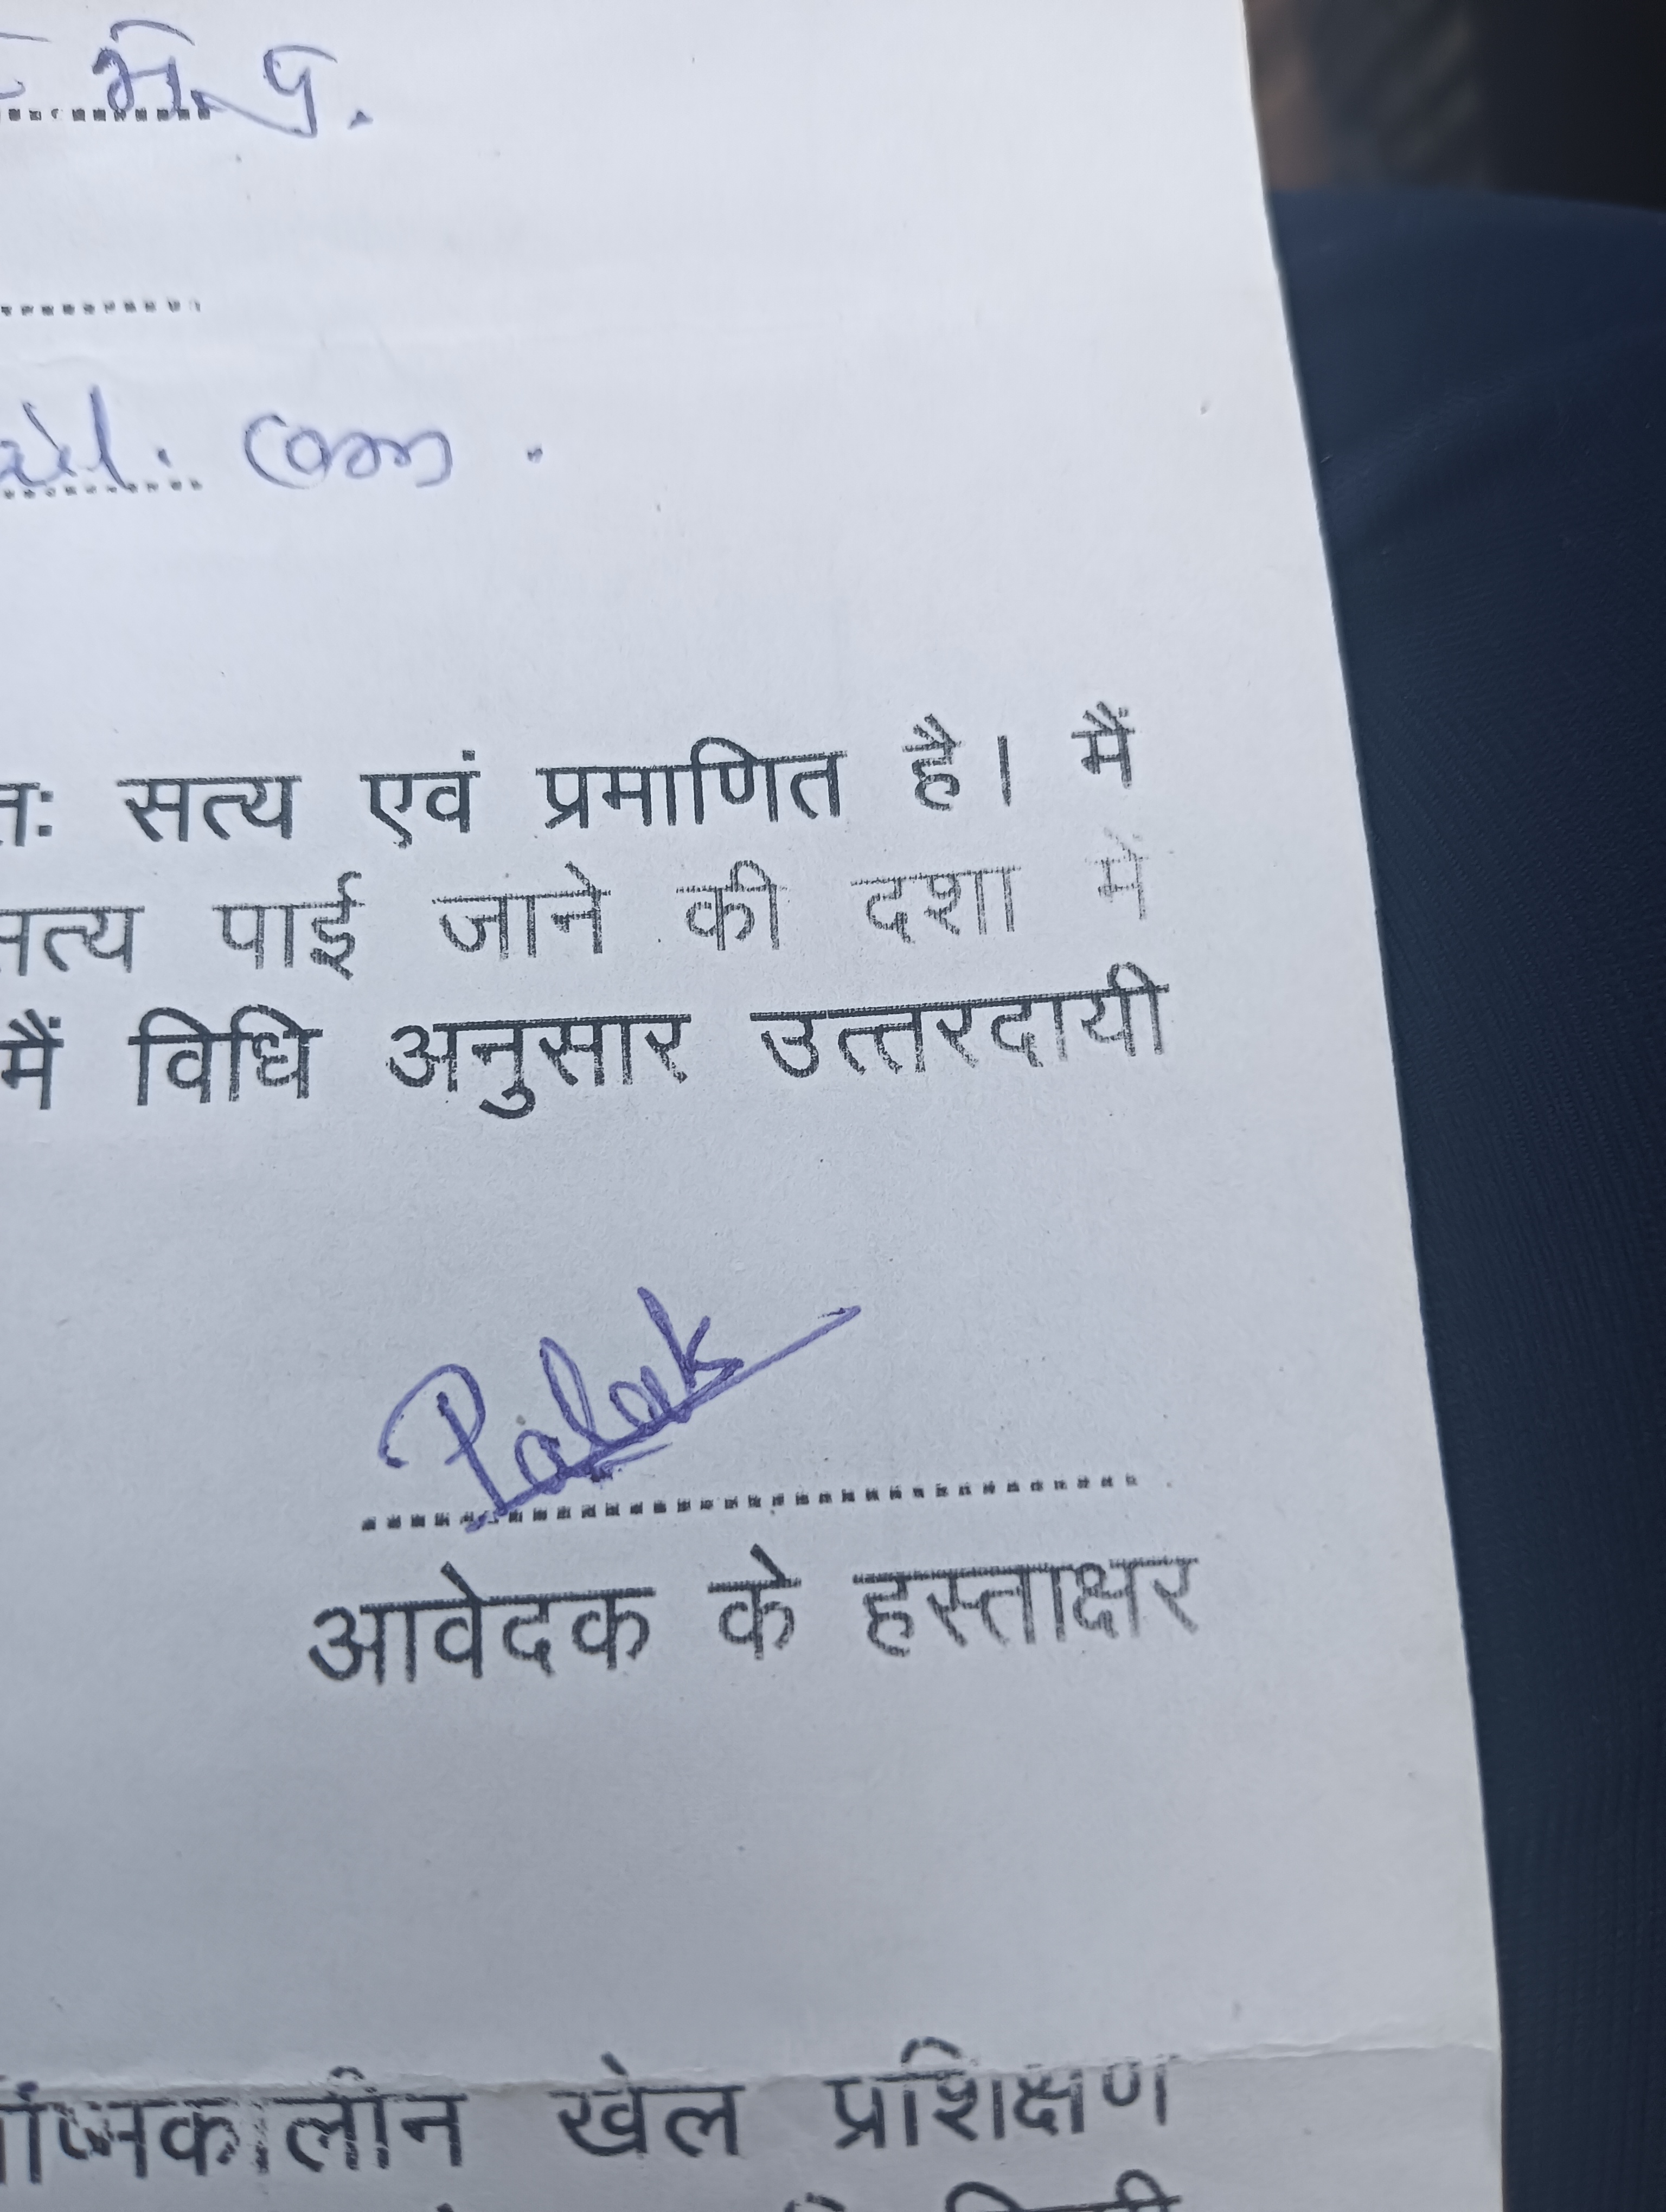 म.प्र.
ail. com .
तः सत्य एवं प्रमाणित है। मैं
सत्य पाई जाने की दशा में
मैं विधि अनुसार उत्तरदायी
Palak
आवेदक के हस्ताक्षर
ग्रीष्मकालीन खेल प्रशिक्षण